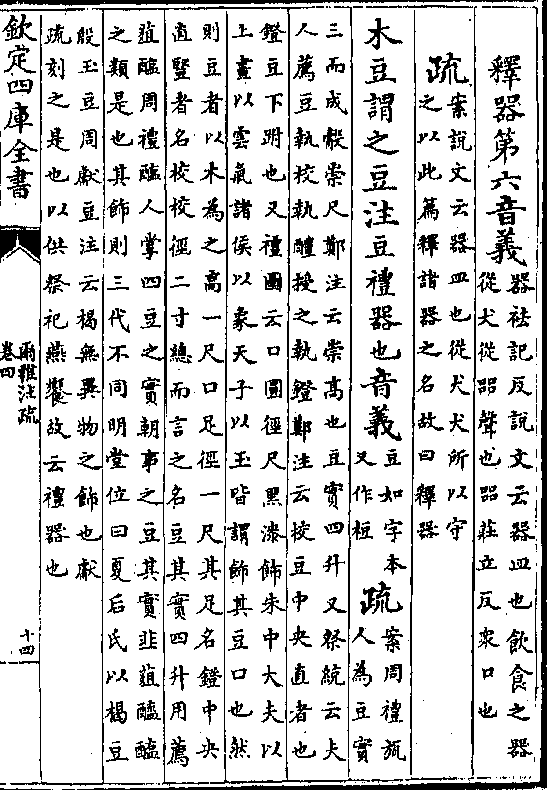 釋器第六音義器袪記反說文云器皿也飲食之器
從犬從㗊聲也㗊莊立反衆口也
疏案說文云器皿也從犬犬所以守
之以此篇釋諸器之名故曰釋器
木豆謂之豆注豆禮器也音義豆如字本
又作梪
疏案周禮瓬
人為豆實
三而成觳崇尺鄭注云崇高也豆實四升又祭統云夫
人薦豆執校執醴授之執鐙鄭注云校豆中央直者也
鐙豆下跗也又禮圖云口圓徑尺黑漆飾朱中大夫以
上畫以雲氣諸侯以象天子以玉皆謂飾其豆口也然
則豆者以木為之高一尺口足徑一尺其足名鐙中央
直豎者名校校徑二寸總而言之名豆其實四升用薦
菹醢周禮醢人掌四豆之實朝事之豆其實韭菹醓醢
之類是也其飾則三代不同明堂位曰夏后氏以楬豆
殷玉豆周獻豆注云楬無異物之飾也獻
疏刻之是也以供祭祀燕饗故云禮器也
欽定四庫全書
爾雅注疏
卷四
十四